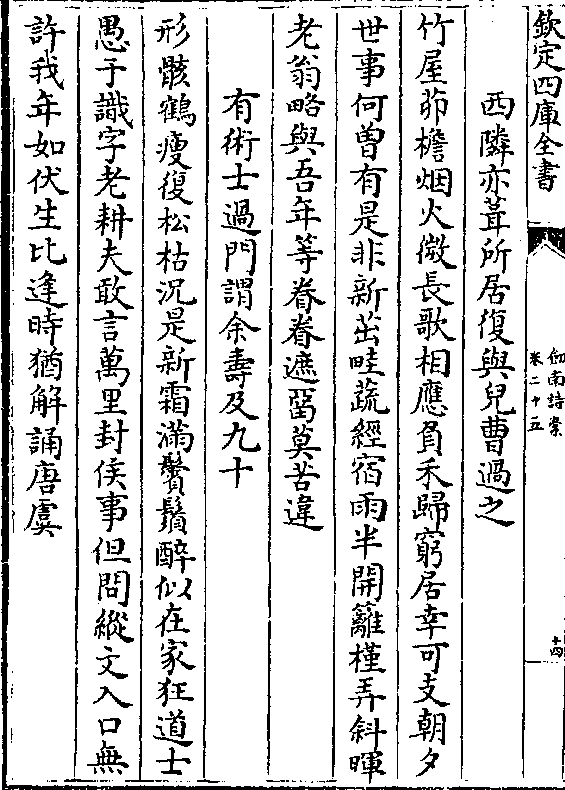 欽定四庫全書
劒南詩槀
卷二十五
十四
西隣亦葺所居復與兒曹過之
竹屋茆檐烟火微長歌相應負禾歸窮居幸可支朝夕
世事何曽有是非新茁畦蔬經宿雨半開籬槿弄斜暉
老翁略與吾年等眷眷遮畱莫苦違
有術士過門謂余壽及九十
形骸鶴瘦復松枯況是新霜滿鬢鬚醉似在家狂道士
愚于識字老耕夫敢言萬里封侯事但問縱文入口無
許我年如伏生比逢時猶解誦唐虞